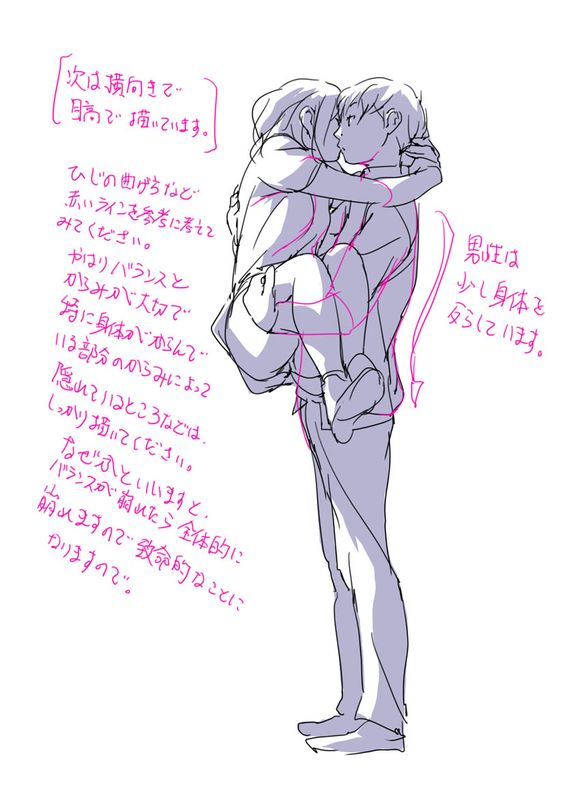 次は横向きで
目高で描いています。
ひじの曲げ方など
赤いラインを参考に考えて
みてください。
やはりバランスと
からみが大切で
特に身体がからんで
いる部分のからみによって
隠れているところなどは、
しっかり描いてください。
なぜかといいますと、
バランスが崩れたら全体的に
崩れますので致命的なことに
なりますので。
男性は
少し身体を
反らしています。